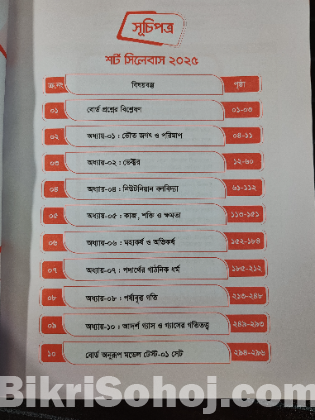 সূচিপত্র
শর্ট সিলেবাস ২০২৫
ক্র.নং বিষয়বস্তু পৃষ্ঠা
০১ বোর্ড প্রশ্নের বিশ্লেষণ ০১-০৩
০২ অধ্যায়-০১ : ভৌত জগৎ ও পরিমাপ ০৪-১১
০৩ অধ্যায়-০২ : ভেক্টর ১২-৬০
০৪ অধ্যায়-০৪ : নিউটনিয়ান বলবিদ্যা ৬১-১১২
০৫ অধ্যায়-০৫ : কাজ, শক্তি ও ক্ষমতা ১১৩-১৫১
০৬ অধ্যায়-০৬ : মহাকর্ষ ও অভিকর্ষ ১৫২-১৮৪
০৭ অধ্যায়-০৭ : পদার্থের গাঠনিক ধর্ম ১৮৫-২১২
০৮ অধ্যায়-০৮ : পর্যাবৃত্ত গতি ২১৩-২৪৮
০৯ অধ্যায়-১০ : আদর্শ গ্যাস ও গ্যাসের গতিতত্ত্ব ২৪৯-২৯৩
১০ বোর্ড অনুরূপ মডেল টেস্ট-০১ সেট ২৯৪-২৯৬
BikriSohoj.com